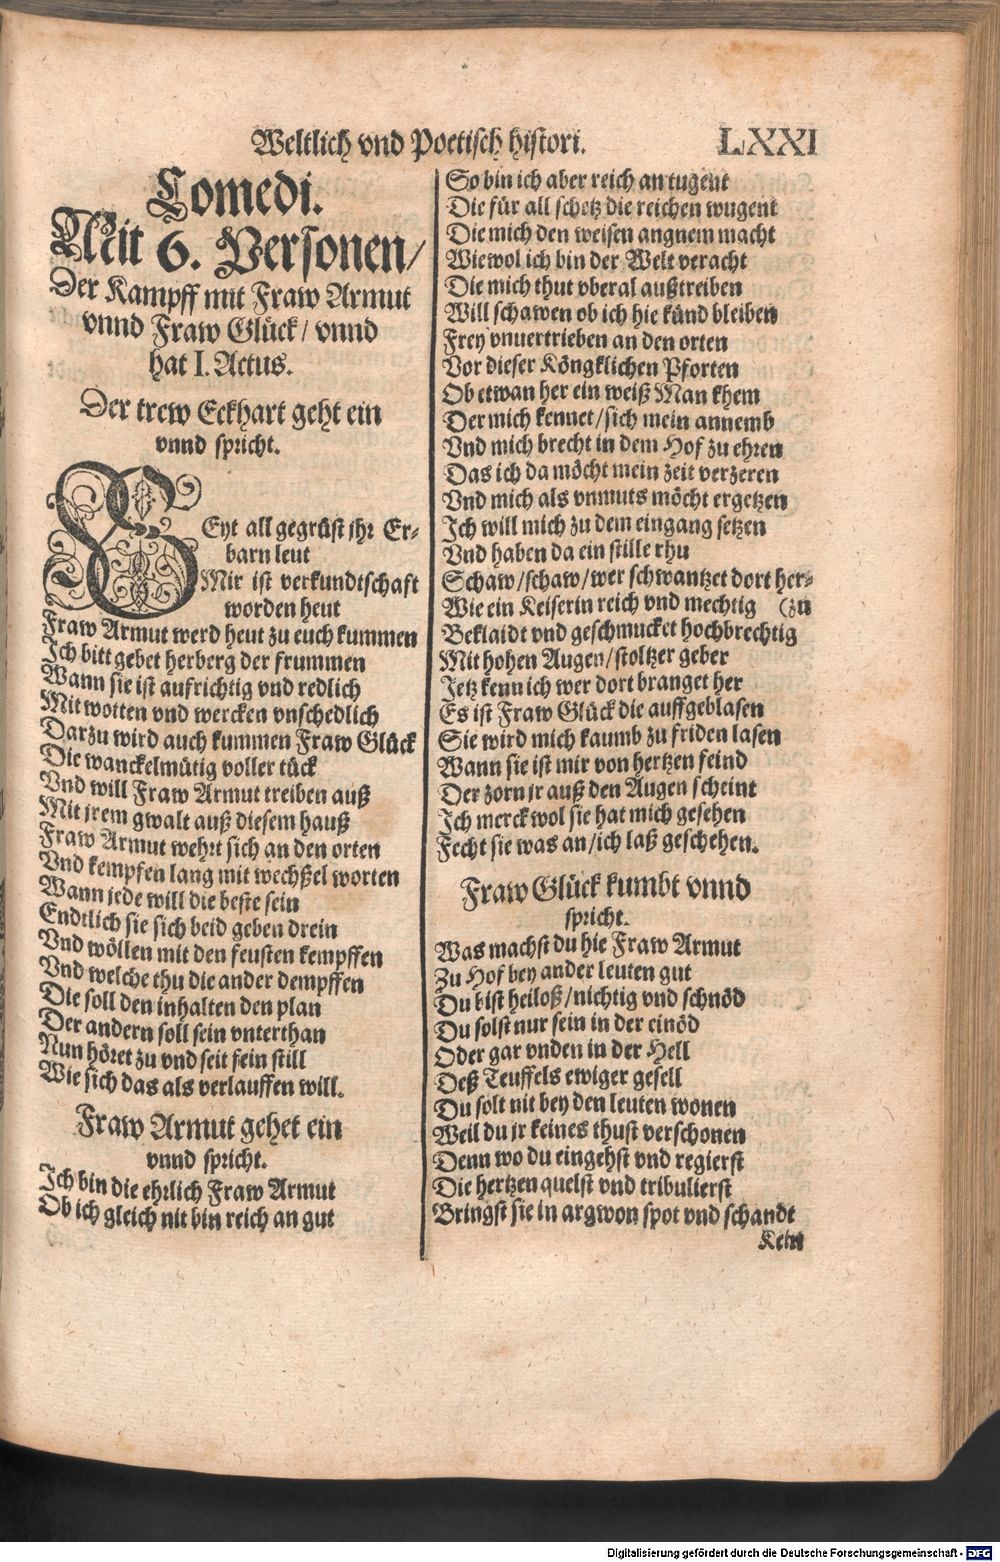 Weltlich vnd Poetisch histori. LXXI
Comedi.
Mit 6. Personen/
Der Kampff mit Fraw Armut
vnnd Fraw Glück/ vnnd
hat I. Actus.
Der trew Eckhart geht ein
vnnd spricht.
SEyt all gegrüst jhr Er-
barn leut
Mir ist verkundtschaft
worden heut
Fraw Armut werd heut zu euch kummen
Ich bitt gebet herberg der frummen
Wann sie ist aufrichtig vnd redlich
Mit wotten vnd wercken vnschedlich
Darzu wird auch kummen Fraw Glück
Die wanckelmütig voller tück
Vnd will Fraw Armut treiben auß
Mit jrem gwalt auß diesem hauß
Fraw Armut wehrt sich an den orten
Vnd kempfen lang mit wechßel worten
Wann jede will die beste sein
Endtlich sie sich beid geben drein
Vnd wöllen mit den feusten kempffen
Vnd welche thu die ander dempffen
Die soll den inhalten den plan
Der andern soll sein vnterthan
Nun höret zu vnd seit fein still
Wie sich das als verlauffen will.
Fraw Armut gehet ein
vnnd spricht.
Ich bin die ehrlich Fraw Armut
Ob ich gleich nit bin reich an gut
So bin ich aber reich an tugent
Die für all schetz die reichen wugent
Die mich den weisen angnem macht
Wiewol ich bin der Welt veracht
Die mich thut vberal außtreiben
Will schawen ob ich hie künd bleiben
Frey vnuertrieben an den orten
Vor dieser Köngklichen Pforten
Ob etwan her ein weiß Man khem
Der mich kennet/sich mein annemb
Vnd mich brecht in dem Hof zu ehren
Das ich da möcht mein zeit verzeren
Vnd mich als vnmuts möcht ergetzen
Ich will mich zu dem eingang setzen
Vnd haben da ein stille rhu
Schaw/schaw/wer schwantzet dort her-
Wie ein Keiserin reich vnd mechtig (zu
Beklaidt vnd geschmucket hochbrechtig
Mit hohen Augen/stoltzer geber
Jetz kenn ich wer dort branget her
Es ist Fraw Glück die auffgeblasen
Sie wird mich kaumb zu friden lasen
Wann sie ist mir von hertzen feind
Der zorn jr auß den Augen scheint
Ich merck wol sie hat mich gesehen
Fecht sie was an/ich laß geschehen.
Fraw Glück kumbt vnnd
spricht.
Was machst du hie Fraw Armut
Zu Hof bey ander leuten gut
Du bist heiloß/nichtig vnd schnöd
Du solst nur sein in der einöd
Oder gar vnden in der Hell
Deß Teuffels ewiger gesell
Du solt nit bey den leuten wonen
Weil du jr keines thust verschonen
Denn wo du eingehst vnd regierst
Die hertzen quelst vnd tribulierst
Bringst sie in argwon spot vnd schandt
Kein
Digitalisierung gefördert durch die Deutsche Forschungsgemeinschaft - DFG